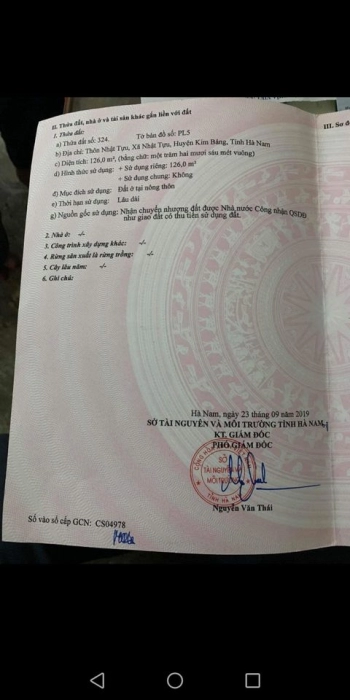 II. Thửa đất, nhà ở và tài sản khác gắn liền với đất
III. Sơ đ
1. Thửa đất:
a) Thửa đất số: 324. Tờ bản đồ số: PL5
b) Địa chỉ: Thôn Nhật Tựu, Xã Nhật Tựu, Huyện Kim Bảng, Tỉnh Hà Nam
c) Diện tích: 126,0 m², (bằng chữ: một trăm hai mươi sáu mét vuông)
d) Hình thức sử dụng: + Sử dụng riêng: 126,0 m²
+ Sử dụng chung: Không
đ) Mục đích sử dụng: Đất ở tại nông thôn
e) Thời hạn sử dụng: Lâu dài
g) Nguồn gốc sử dụng: Nhận chuyển nhượng đất được Nhà nước Công nhận QSDĐ
như giao đất có thu tiền sử dụng đất.
2. Nhà ở: -/-
3. Công trình xây dựng khác: -/-
4. Rừng sản xuất là rừng trồng: -/-
5. Cây lâu năm: -/-
6. Ghi chú:
Hà Nam, ngày 23 tháng 09 năm 2019
SỞ TÀI NGUYÊN VÀ MÔI TRƯỜNG TỈNH HÀ NAM
KT. GIÁM ĐỐC
PHÓ GIÁM ĐỐC
SỞ
TÀI NGUYÊN
MÔI TRƯỜNG
TỈNH HÀ NAM
Nguyễn Văn Thái
Số vào sổ cấp GCN: CS04978